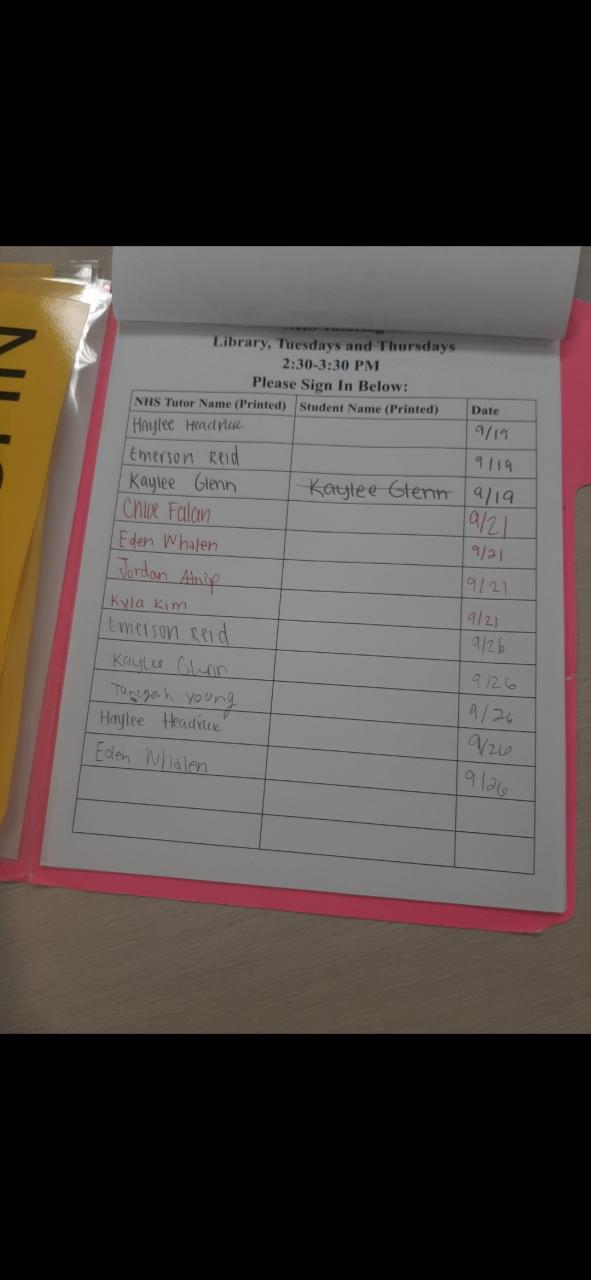 NHS Tutoring
Library, Tuesdays and Thursdays
2:30-3:30 PM
Please Sign In Below:
NHS Tutor Name (Printed) Student Name (Printed) Date
Haylee Headrick 9/19
Emerson Reid 9/19
Kaylee Glenn Kaylee Glenn 9/19
Chloe Falan 9/21
Eden Whalen 9/21
Jordan Atnip 9/21
Kyla Kim 9/21
Emerson Reid 9/26
Kaylee Glenn 9/26
young 9/26
Haylee Headrick 9/26
Eden Whalen 9/26